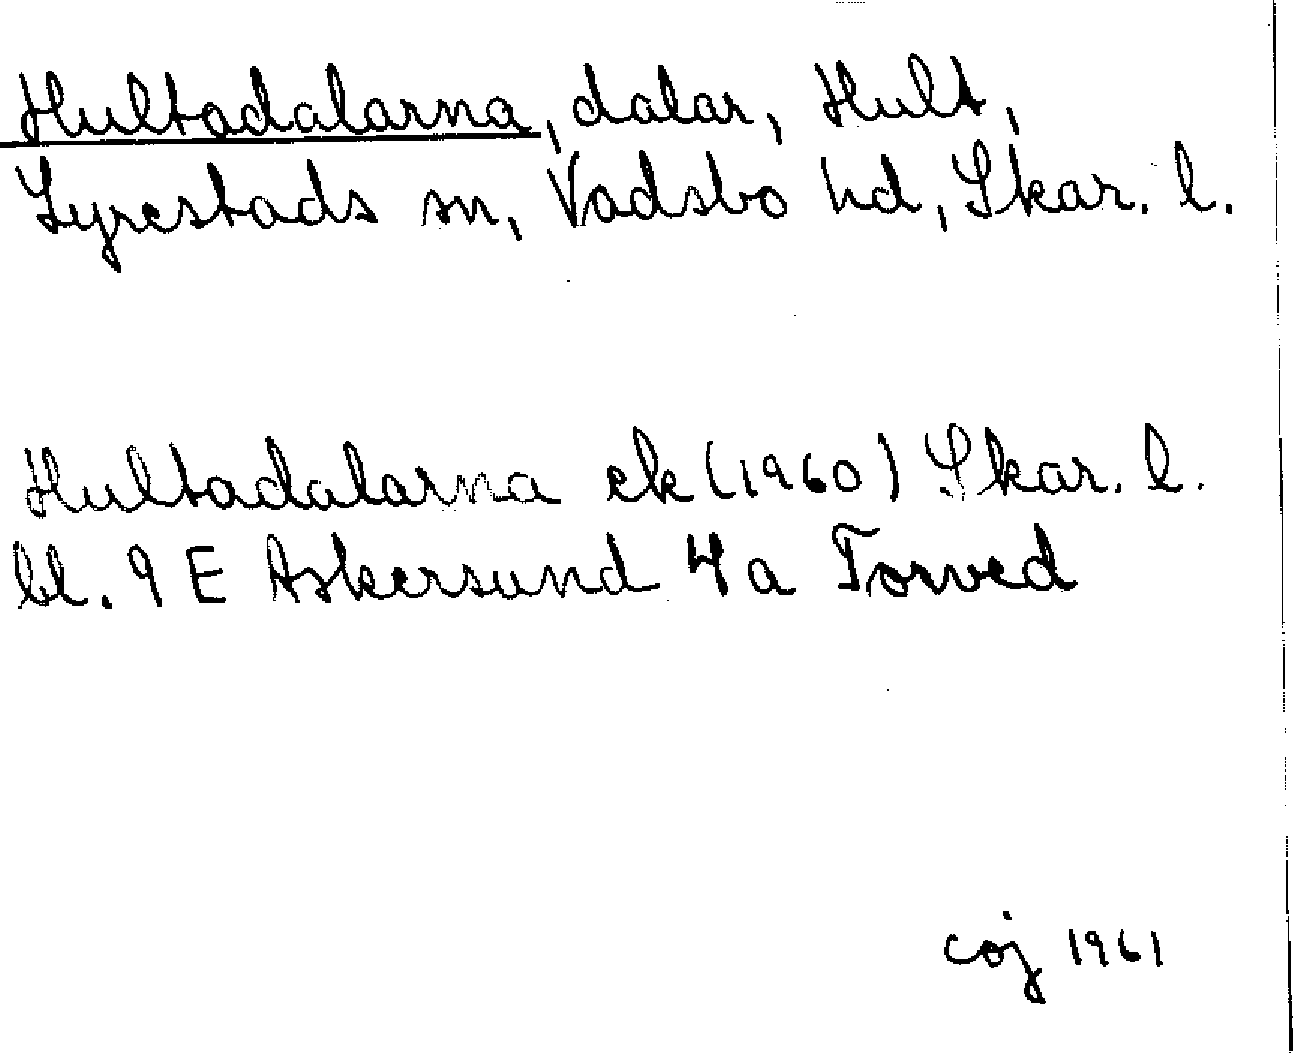 Hultadalarna, dalar, Hult,
Lyrestads sn, Vadsbo hd, Skar. l.
Hultadalarna ek (1960) Skar. l.
bl. 9 E Askersund 4 a Torved
coj 1961